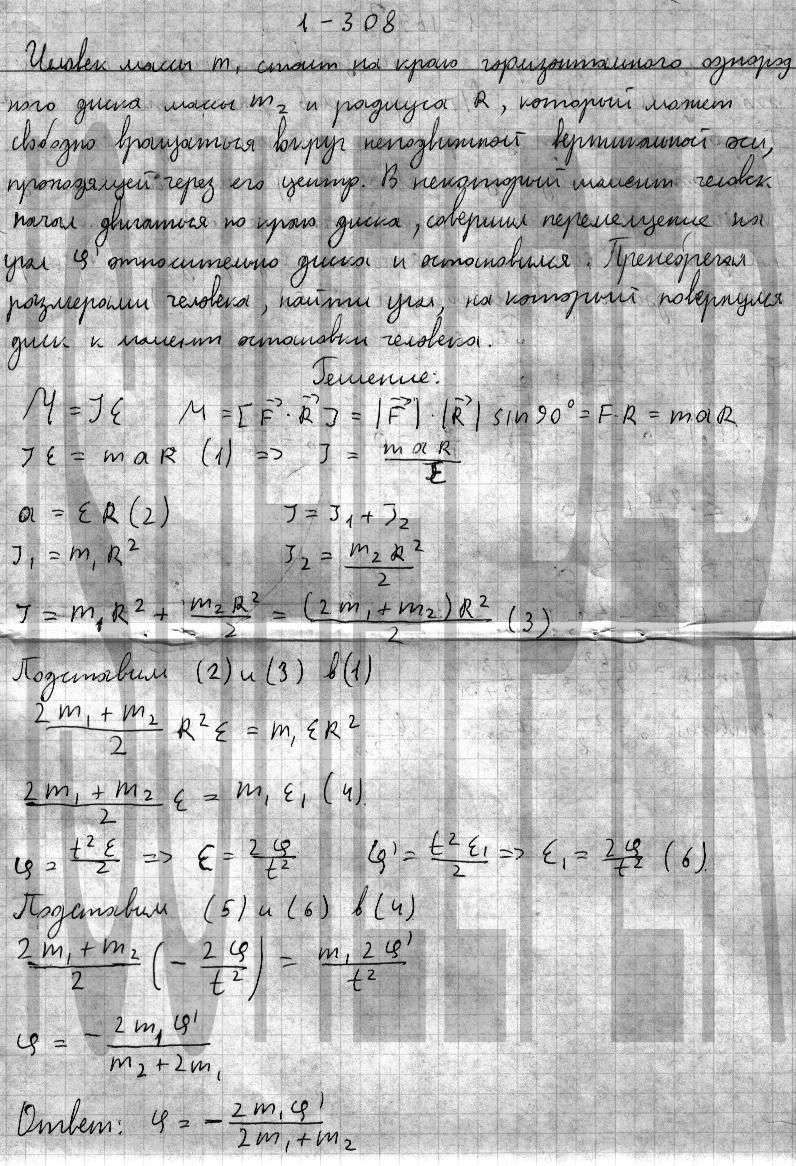 1-308
Человек массы m₁ стоит на краю горизонтального однород
ного диска массы m₂ и радиуса R, который может
свободно вращаться вокруг неподвижной вертикальной оси,
проходящей через его центр. В некоторый момент человек
начал двигаться по краю диска, совершил перемещение на
угол φ' относительно диска и остановился. Пренебрегая
размерами человека, найти угол, на который повернулся
диск к моменту остановки человека.
Решение:
M = Jε M = [F⃗·R⃗] = |F⃗|·|R⃗| sin90° = F·R = maR
Jε = maR (1) => J = maR/ε
a = εR (2) J = J₁ + J₂
J₁ = m₁R² J₂ = m₂R²/2
J = m₁R² + m₂R²/2 = (2m₁+m₂)R²/2 (3)
Подставим (2) и (3) в (1)
(2m₁+m₂)/2 R²ε = m₁εR²
(2m₁+m₂)/2 ε = m₁ε₁ (4).
φ = t²ε/2 => ε = 2φ/t² φ' = t²ε₁/2 => ε₁ = 2φ/t² (6).
Подставим (5) и (6) в (4)
(2m₁+m₂)/2 (-2φ/t²) = m₁2φ'/t²
φ = -2m₁φ'/(m₂+2m₁)
Ответ: φ = -2m₁φ'/(2m₁+m₂)